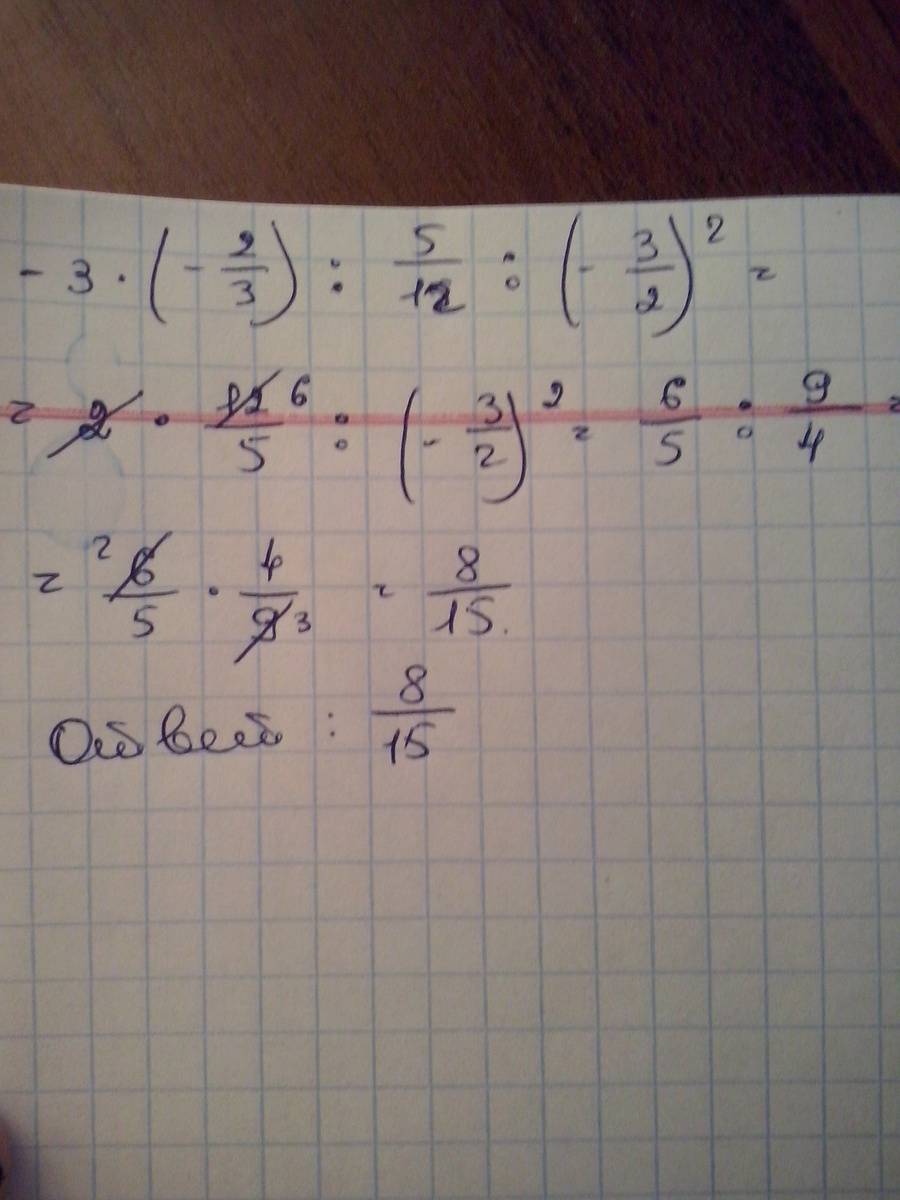 - 3 · (- 2/3) : 5/12 : (- 3/2)² =
= 2 · 12/5 6 : (- 3/2)² = 6/5 : 9/4 =
= 2 6/5 · 4/9 3 = 8/15.
Ответ : 8/15